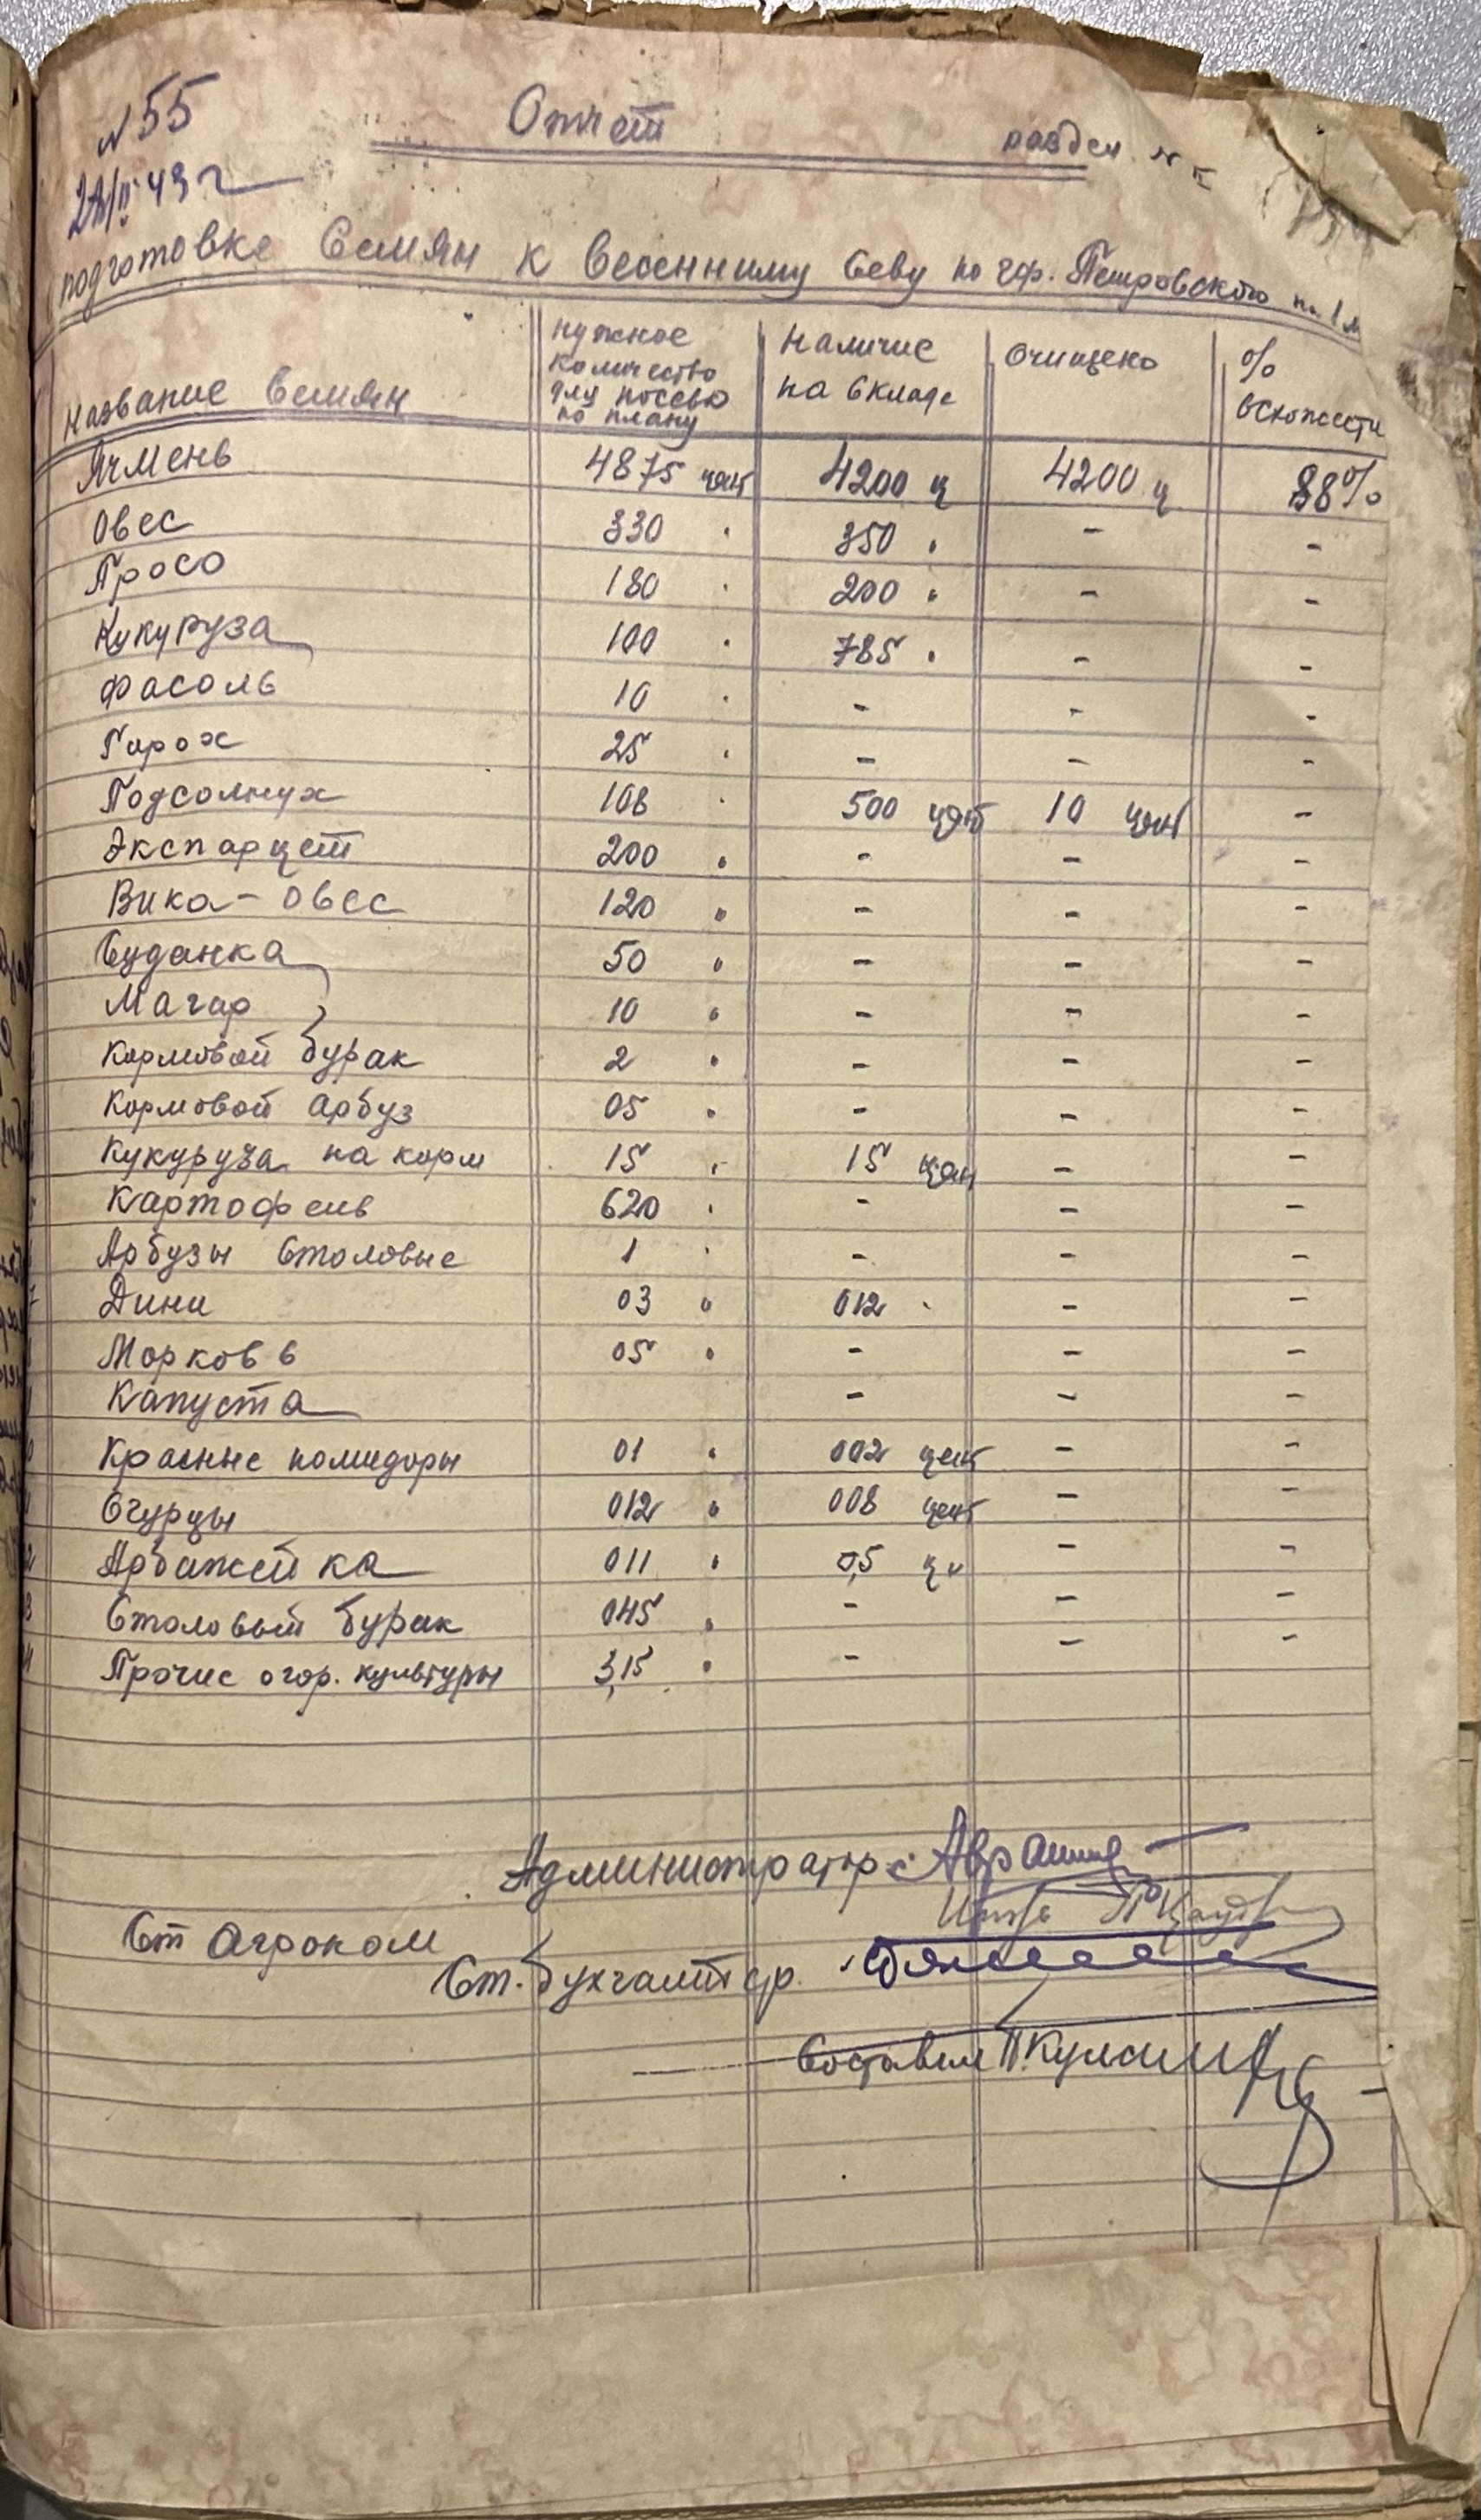 № 55
Отчет
раздел
43 г
подготовке Семян к весенниму севу по гф. Петровского на 1 м
Название Семян нужное количество для посева по плану Наличие на складе очищено % всхожести
Ячмень 4875 цент 4200 ц 4200 ц 88%
Овес 330 " 350 " - -
Просо 180 " 200 " - -
Кукуруза 100 " 785 " - -
Фасоль 10 " - - -
Горох 25 " - - -
Подсолнух 108 " 500 цент 10 цент -
Экспарцет 200 " - - -
Вика - овес 120 " - - -
Суданка 50 " - - -
Магар 10 " - - -
Кормовой бурак 2 " - - -
Кормовой арбуз 05 " - - -
Кукуруза на корм 15 " 15 цен - -
Картофель 620 " - - -
Арбузы столовые 1 " - - -
Дини 03 " 012 " - -
Морковь 05 " - - -
Капуста - - -
Красные помидоры 01 " 002 цент - -
Огурцы 012 " 008 цент - -
Арбажейка 011 " 0,5 ц - -
Столовый бурак 045 " - - -
Прочие огор. культуры 3,15 " - - -
Администратор:
Ст Агроном
Ст. бухгалтер
Составил